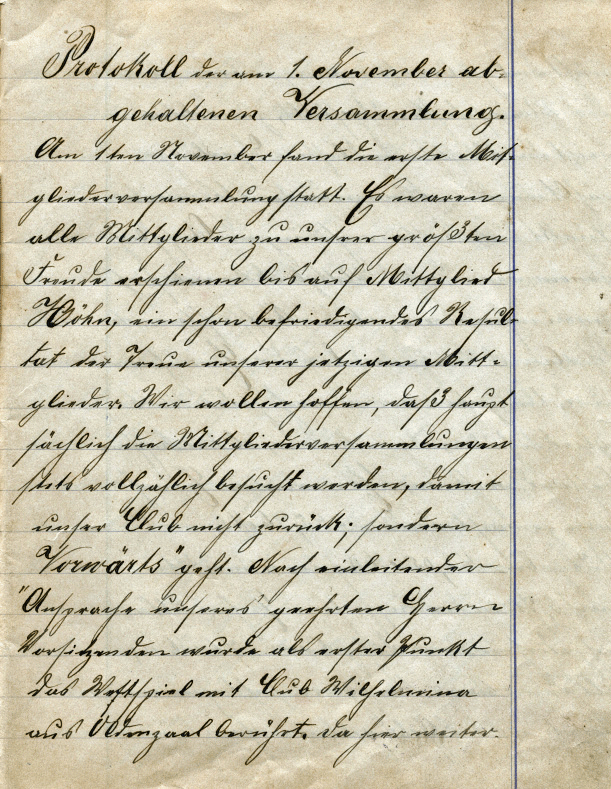 Protokoll der am 1. November ab-
gehaltenen Versammlung.
Am 1ten November fand die erste Mit-
gliederversammlung statt. Es waren
alle Mittglieder zu unsrer größten
Freude erschienen bis auf Mittglied
Höhn, ein schon befriedigendes Resul-
tat der Treue unserer jetzigen Mitt-
glieder. Wir wollen hoffen, daß haupt
sächlich die Mittgliederversammlungen
stets vollzählich besucht werden, damit
unser Club nicht zurück; sondern
"Vorwärts" geht. Nach einleitender
Ansprache unseres geehrten Herrn
Vorsitzenden wurde als erster Punkt
das Wettspiel mit Club Wilhelmina
aus Oldenzaal berührt. Da hier weiter.